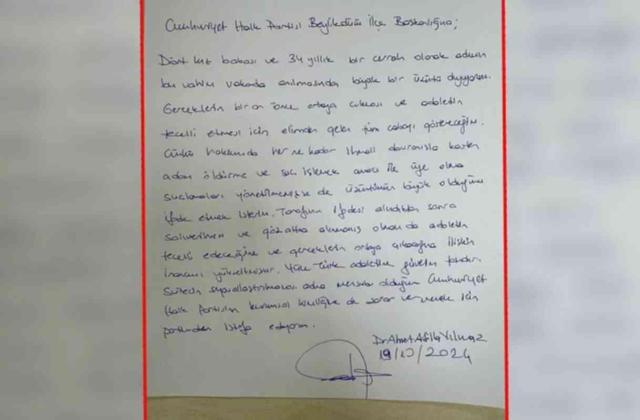 Cumhuriyet Halk Partisi Beylikdüzü İlçe Başkanlığına;
Dört kız babası ve 34 yıllık bir cerrah olarak adımın
bu vahim vakada anılmasından büyük bir üzüntü duyuyorum.
Gerçeklerin bir an önce ortaya çıkması ve adaletin
tecelli etmesi için elimden gelen tüm çabayı göstereceğim.
Çünkü hakkımda her ne kadar ihmali davranışla kasten
adam öldürme ve suç işlemek amacı ile üye olma
suçlamaları yöneltilmemişse de üzüntümün büyük olduğunu
ifade etmek isterim. Tarafım ifadesi alındıktan sonra
salıverilmem ve gözaltına alınmamış olmam da adaletin
tecelli edeceğine ve gerçeklerin ortaya çıkacağına ilişkin
inancımı yükseltmiştir. Yüce Türk adaletine güvenim tamdır.
Sürecin siyasallaştırılmaması adına mensubu olduğum Cumhuriyet
Halk Partisinin kurumsal kimliğine de zarar vermemek için
partimden istifa ediyorum.
Dr Ahmet Atilla Yılmaz
19/10/2024